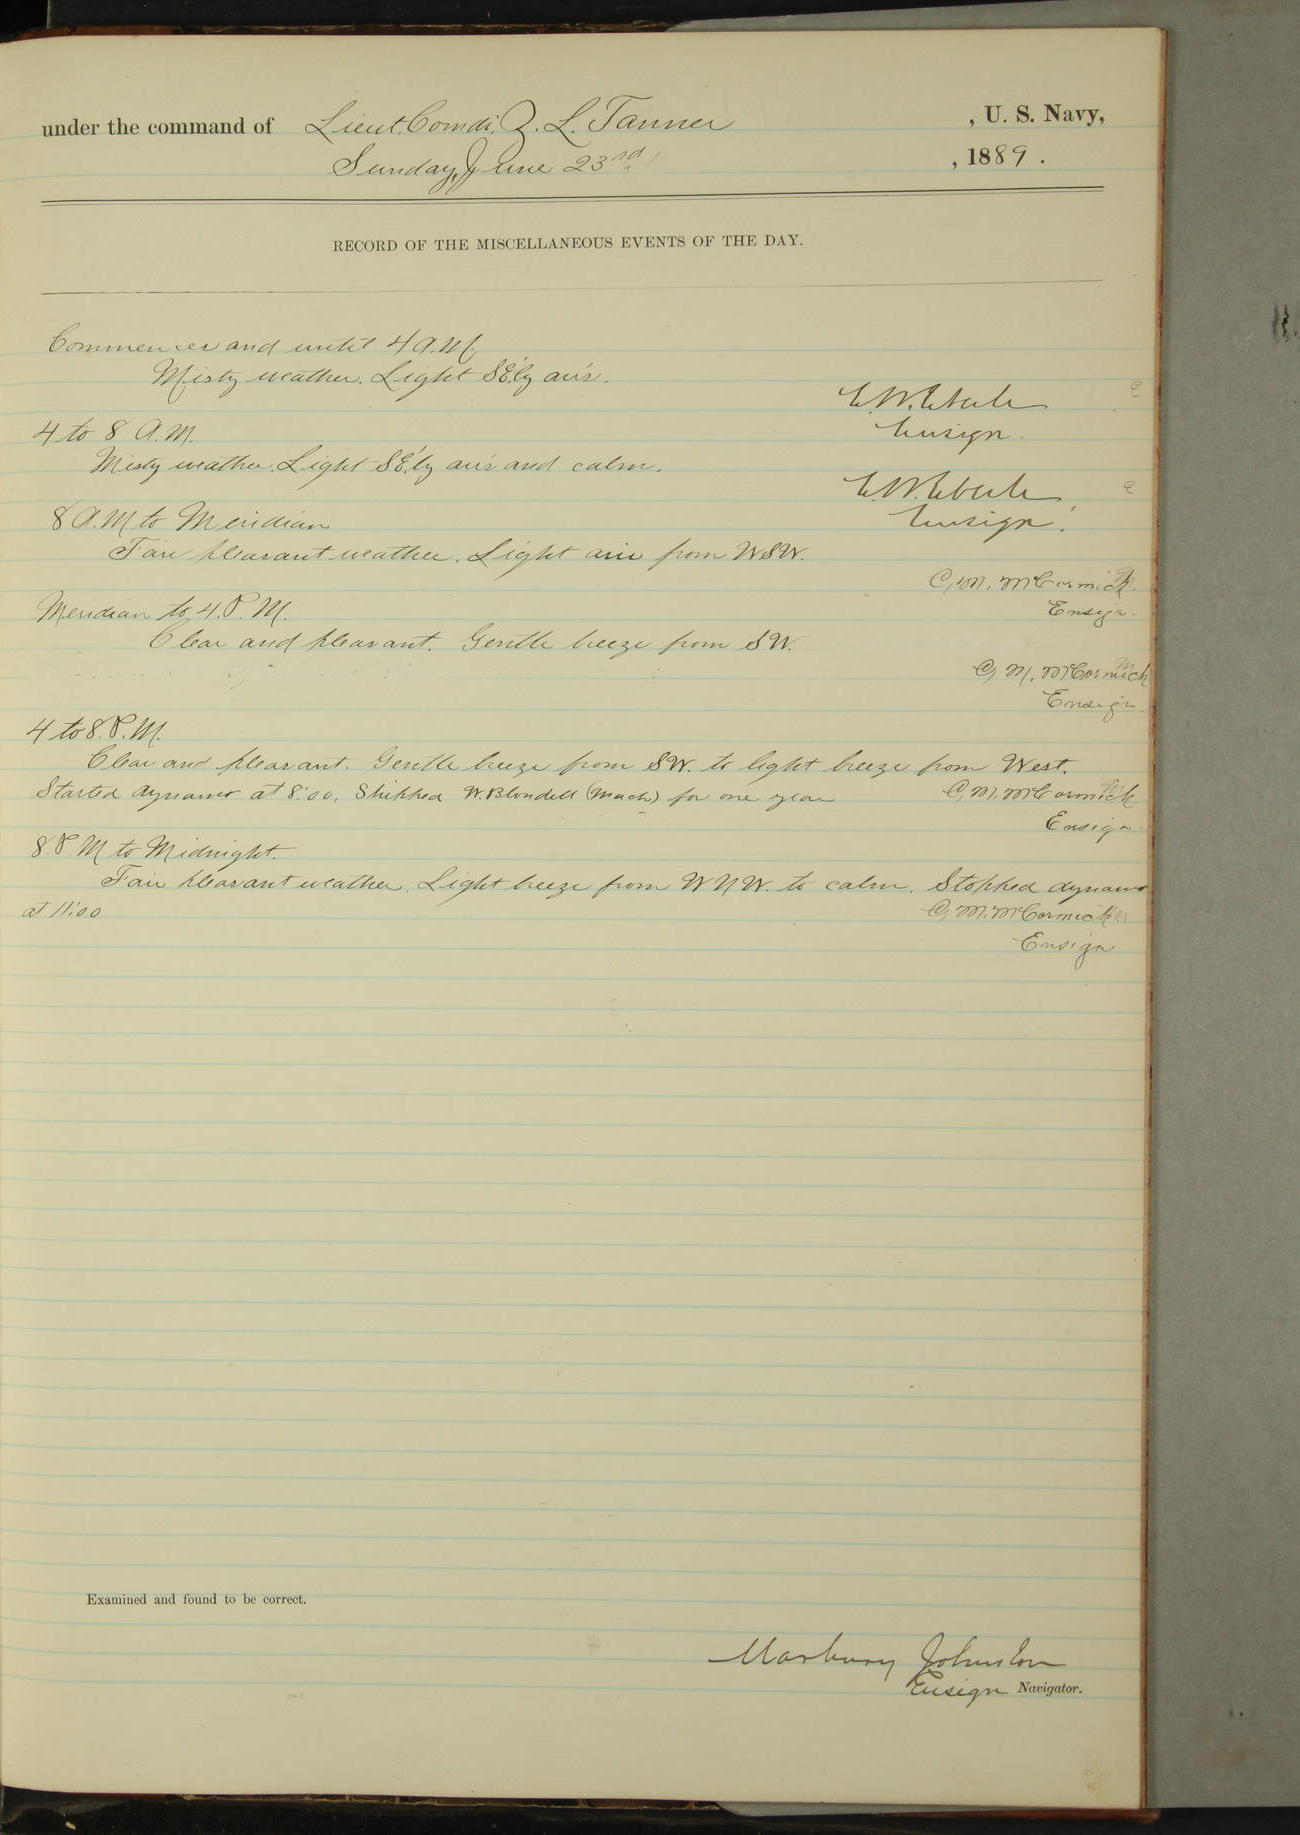 under the command of Lieut. Comdr. Z. L. Tanner , U. S. Navy,
Sunday, June 23rd , 1889.
RECORD OF THE MISCELLANEOUS EVENTS OF THE DAY.
Commences and until 4 A.M.
Misty weather. Light SE'ly airs.
E. W. Eberle
Ensign.
4 to 8 A.M.
Misty weather. Light SE'ly airs and calm.
E. W. Eberle
Ensign.
8 A.M to Meridian
Fair pleasant weather. Light airs from WSW.
C. M. McCormick.
Ensign.
Meridian to 4. P. M.
Clear and pleasant. Gentle breeze from SW.
C. M. McCormick
Ensign
4 to 8. P. M.
Clear and pleasant. Gentle breeze from SW. to light breeze from West.
Started dynamo at 8:00. Shipped W. Blondell (Mach) for one year
C. M. McCormick
Ensign.
8. P. M to Midnight.
Fair pleasant weather. Light breeze from WNW. to calm. Stopped dynamo
at 11:00
C. M. McCormick
Ensign
Examined and found to be correct.
Marbury Johnston
Ensign Navigator.